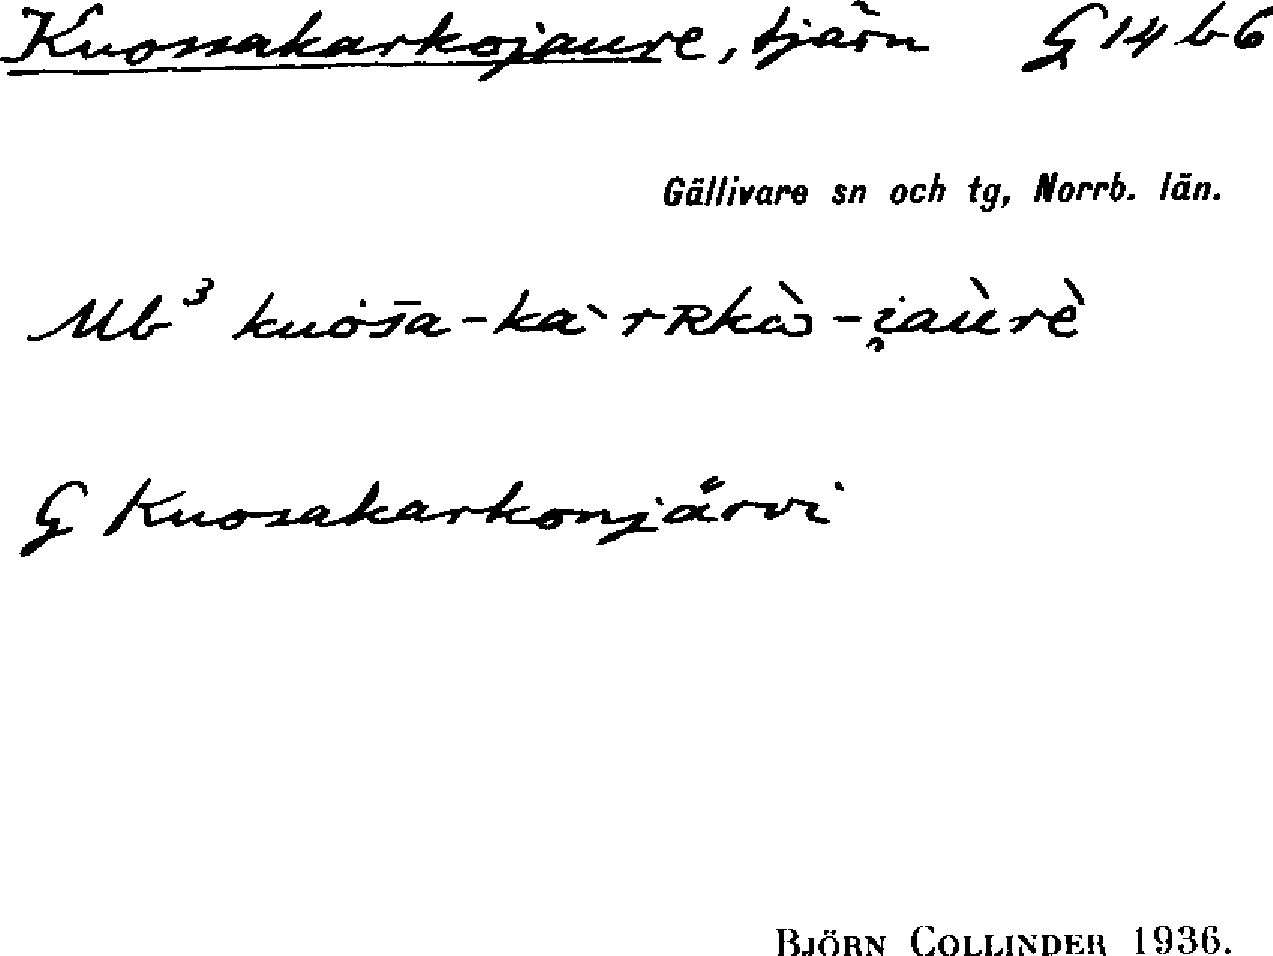 Kuossakarkojaure, tjärn G 14 b 6
Gällivare sn och tg, Norrb. län.
Mb³ kuòs̄a-ka`rʀkɑ̀-i̯aùrè
G Kuosakarkonjärvi
BJÖRN COLLINDER 1936.